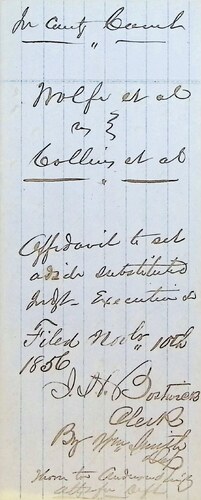 In County Court
"
Wolfe et al
vs
Collins et al
"
Affidavit to set
aside substituted
Judgt - Execution &
Filed Novbr 10th
1856
J. H. Bostwick
Clerk
By Wm Smith